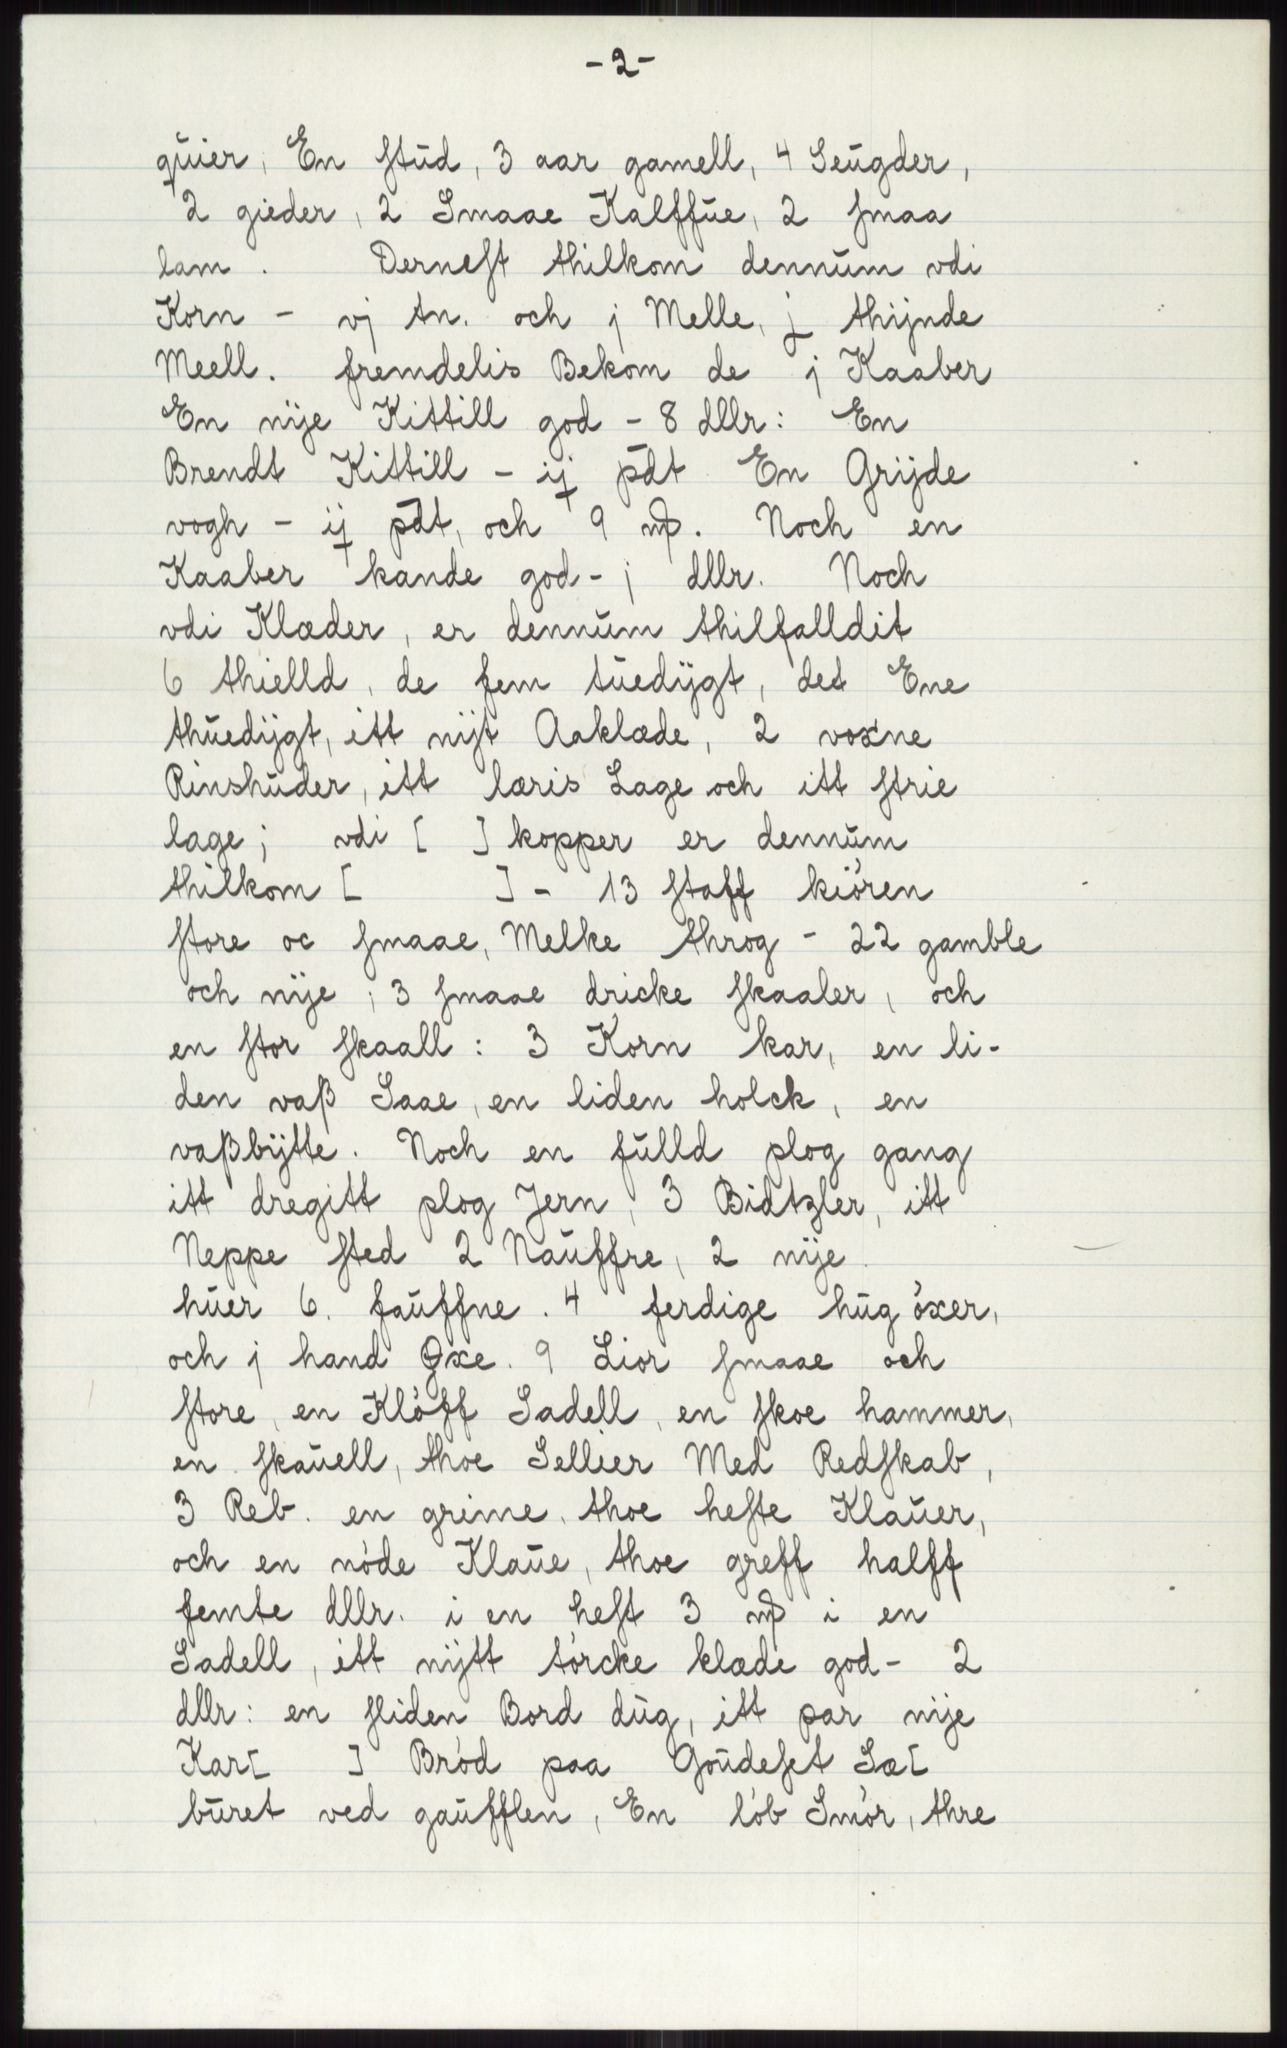 -2-
quier, En stud, 3 aar gamell, 4 Seugder,
2 gieder, 2 Smaae Kalffue, 2 smaa
lam. Dernest thilkom dennum vdi
Korn - vj tn. och j Melle, j thijnde
Meell. fremdelis Bekom de j Kaaber
En nije Kittill god - 8 dllr: En
Brendt Kittill - ij pdt En Grijde
vogh - ij pdt, och 9 mp. Noch en
Kaaber kande god - j dllr. Noch
vdi Klæder, er dennum thilfalldit
6 thielld, de fem tuedijgt, det Ene
thuedijgt, itt nijt Aaklæde, 2 voxne
Rinshuder, itt læris Lage och itt strie
lage; vdi [ ] kopper er dennum
thilkom [ ] - 13 staff kiören
store oc smaae, Melke throg - 22 gamble
och nije, 3 smaae dricke skaaler, och
en stor skaall: 3 Korn kar, en li-
den vaß Saae, en liden holck, en
vaßbijtte. Noch en fulld plog gang
itt dregitt plog Jern, 3 Bidtzler, itt
Neppe sted 2 Nauffre, 2 nije
huer 6. fauffne. 4 ferdige hug öxer,
och j hand Øxe. 9 Lior smaae och
store, en Klöff Sadell, en skoe hammer,
en skauell, thoe Sellier Med Redskab,
3 Reb. en grime, thoe heste Klauer,
och en nöde Klaue, thoe greff halff
femte dllr. i en hest 3 mp i en
Sadell, itt nijtt törcke klæde god - 2
dllr: en sliden Bord dug, itt par nije
Kar[ ] Bröd paa Goudeset Sæ[
buret ved gaufflen, En löb Smör, thre